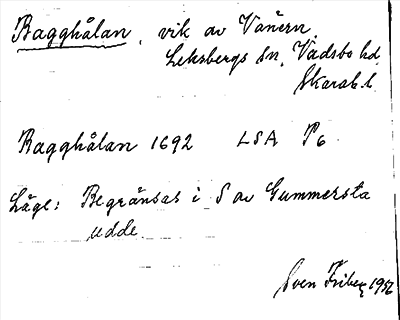 Ragghålan, vik av Vänern.
Leksbergs sn, Vadsbo hd,
Skarab. l.
Ragghålan 1692 LSA P6
Läge: Begränsas i S av Gummersta
udde.
Sven Fribeg 1952